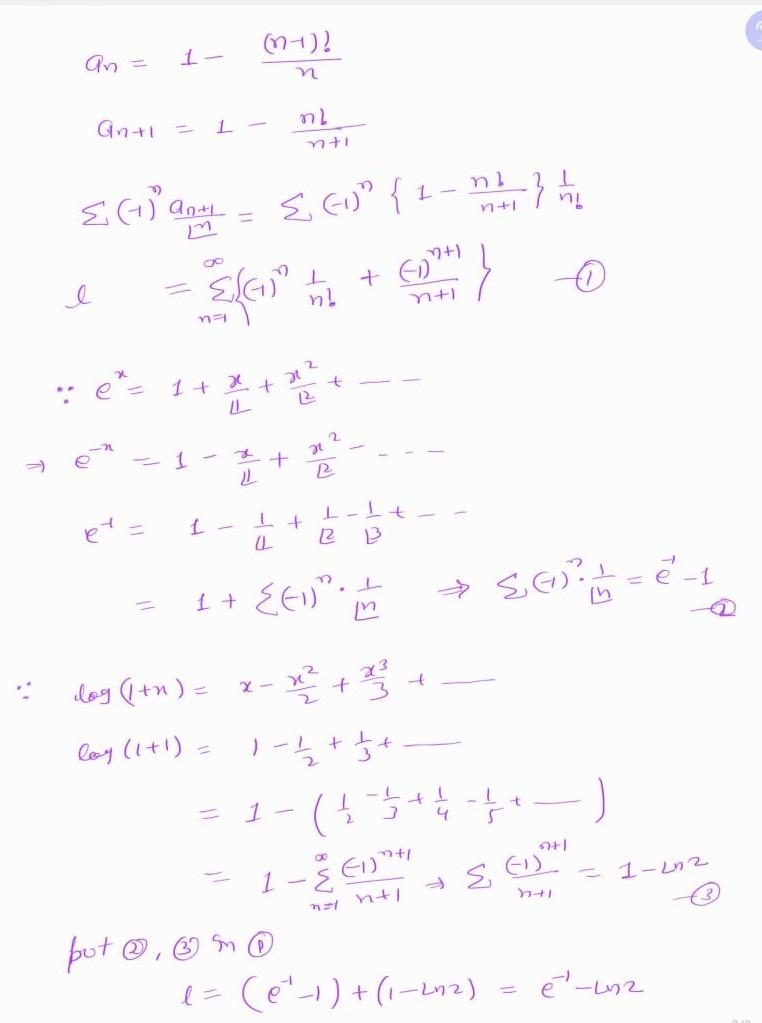 an = 1 - (n-1)!/n
an+1 = 1 - n!/n+1
Σ(-1)^n an+1/⌊n = Σ(-1)^n { 1 - n!/n+1 } 1/n!
l = Σ_{n=1}^{∞} { (-1)^n 1/n! + (-1)^{n+1}/n+1 } —①
∵ e^x = 1 + x/⌊1 + x^2/⌊2 + — —
⇒ e^{-x} = 1 - x/⌊1 + x^2/⌊2 - - - -
e^{-1} = 1 - 1/⌊1 + 1/⌊2 - 1/⌊3 + - -
= 1 + Σ(-1)^n · 1/⌊n ⇒ Σ(-1)^n · 1/⌊n = e^{-1} - 1 —②
∵ log(1+x) = x - x^2/2 + x^3/3 + —
log(1+1) = 1 - 1/2 + 1/3 + —
= 1 - ( 1/2 - 1/3 + 1/4 - 1/5 + — )
= 1 - Σ_{n=1}^{∞} (-1)^{n+1}/n+1 ⇒ Σ (-1)^{n+1}/n+1 = 1 - ln2 —③
put ②, ③ in ①
l = (e^{-1} - 1) + (1 - ln2) = e^{-1} - ln2